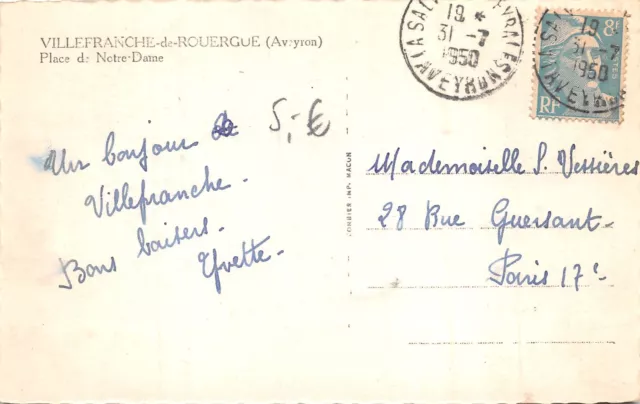 VILLEFRANCHE-de-ROUERGUE (Aveyron)
Place de Notre-Dame
19 *
31 -7
1950
(AVEYRON)
8F
19
31 -7
1950
RF
5,-€
Un bonjour de
Villefranche.
Bons baisers.
Yvette.
COMBIER IMP. MACON
Mademoiselle S. Vessières
28 Rue Guersant.
Paris 17e